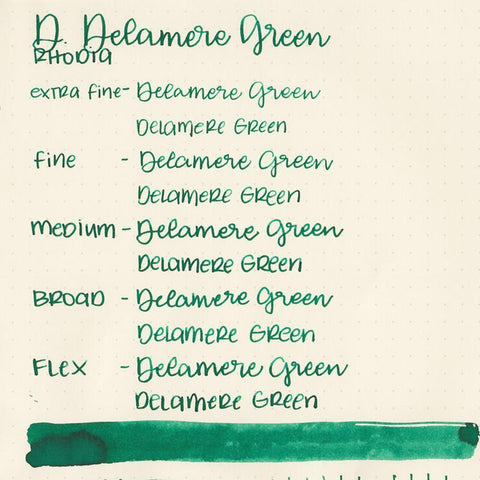 D. Delamere Green
RHODIA
extra fine - Delamere Green
Delamere Green
fine - Delamere Green
Delamere Green
medium - Delamere Green
Delamere Green
Broad - Delamere Green
Delamere Green
Flex - Delamere Green
Delamere Green